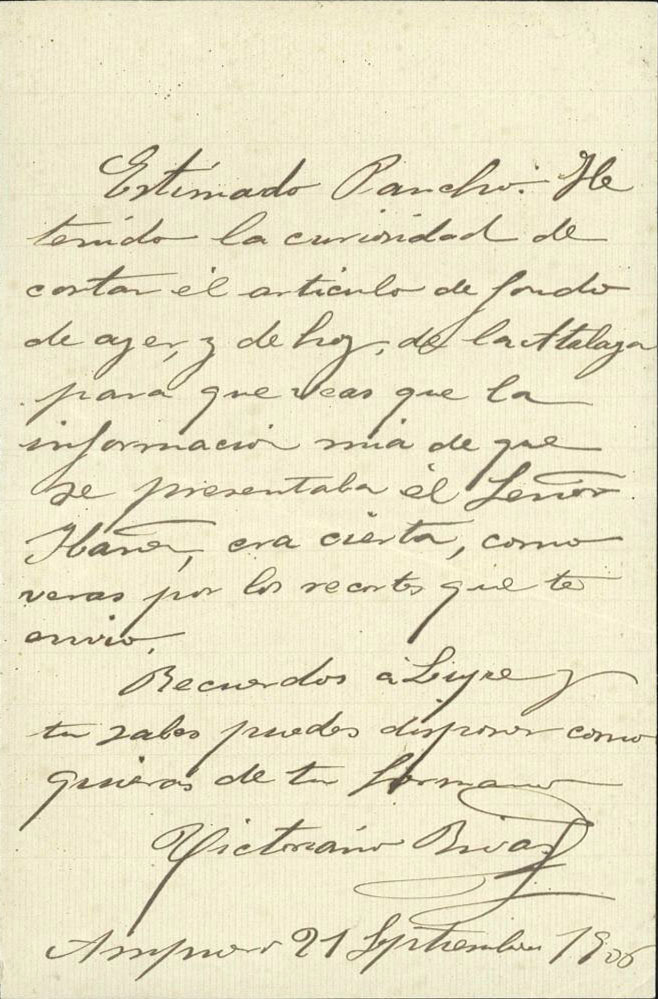 Estimado Pancho: He
tenido la curiosidad de
cortar él articulo de fondo
de ayer, y de hoy, de la Atalaya
para que veas que la
informacion mia de que
se presentaba él Señor
Ibañez, era cierta, como
veras por los recortes que te
envio.
Recuerdos á y
tu sabes puedes disponer como
quieras de tu hermano
Victoriano Rivas
Ampuero 21 Septiembre 1906